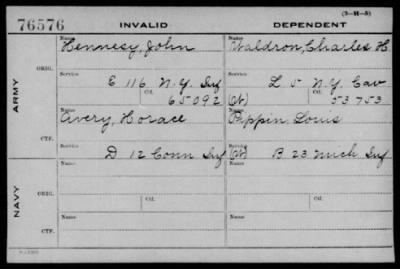 (3-M-5)
76576 INVALID DEPENDENT
Name Name
Hennesy, John Waldron, Charles H
ORIG.
Service Service
E 116 N.Y. Inf L 5 N.Y. Cav
Ctf. Ctf.
65092 (Ct) 53753
ARMY
Name Name
Avery, Horace Pippin, Louis
CTF.
Service Service
D 12 Conn Inf (Ct) B 23 Mich Inf
Name Name
ORIG.
Ctf. Ctf.
NAVY
Name Name
CTF.